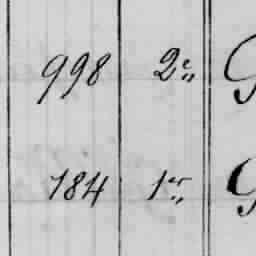 998 2e,, G
184 1er,, G